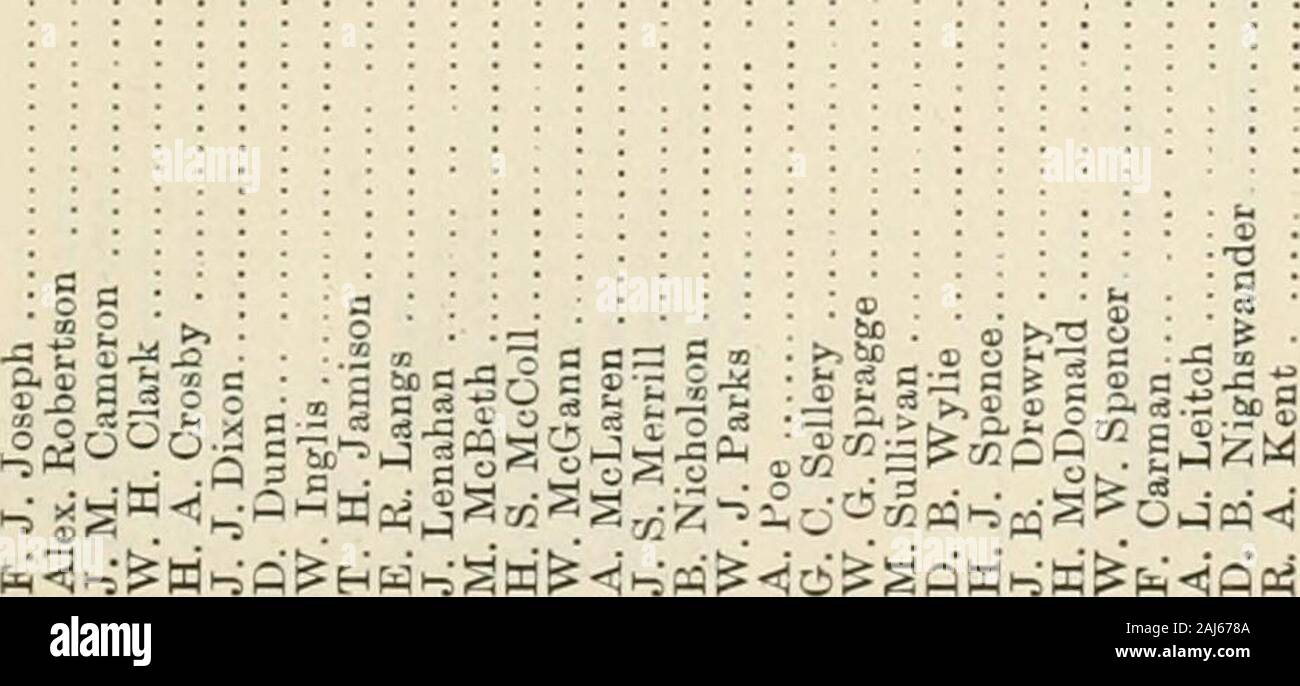 F. J. Joseph
Alex. Robertson
J. M. Cameron
W. H. Clark
H. A. Crosby
J. J. Dixon
D. Dunn
W. Inglis
T. H. Jamison
E. R. Langs
J. Lenahan
M. McBeth
H. S. McColl
W. McGann
A. McLaren
J. S. Merrill
B. Nicholson
W. J. Parks
A. Poe
G. C. Sellery
W. G. Spragge
M. Sullivan
D. B. Wylie
H. J. Spence
J. B. Drewry
H. McDonald
W. W. Spencer
F. Carman
A. L. Leitch
D. B. Nighswander
R. A. Kent
alamy
Image ID: 2AJ678A
www.alamy.com